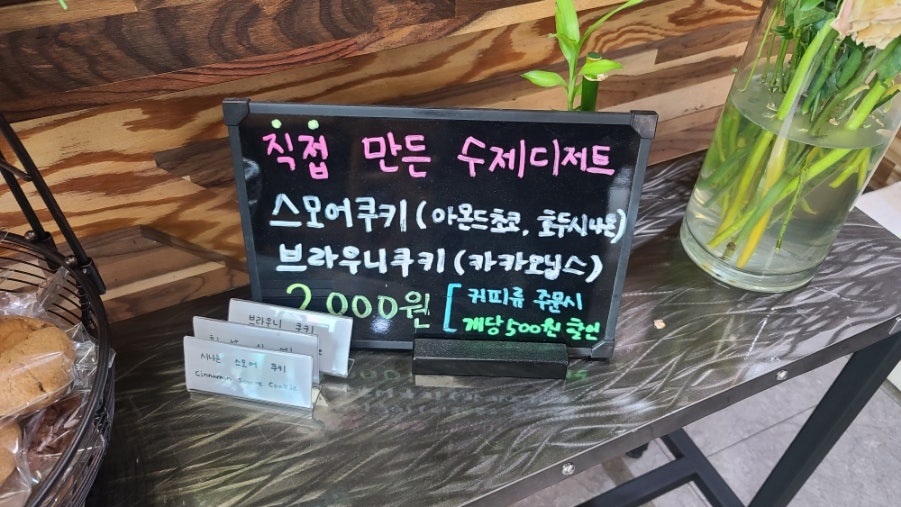 직접 만든 수제디저트
스모어쿠키 (아몬드초코, 호두시나몬)
브라우니쿠키 (카카오닙스)
2,000원 [커피류 주문시
개당 500원 할인
브라우니 쿠키
시나몬 스모어 쿠키
Cinnamon Smore Cookie